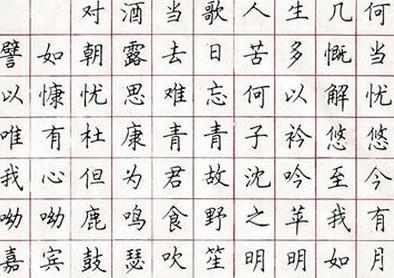 对酒当歌人生几何
譬如朝露去日苦多慨当
以慷忧思难忘何以解忧
唯有杜康青青子衿悠悠
我心但为君故沈吟至今
呦呦鹿鸣食野之苹我有
嘉宾鼓瑟吹笙明明如月